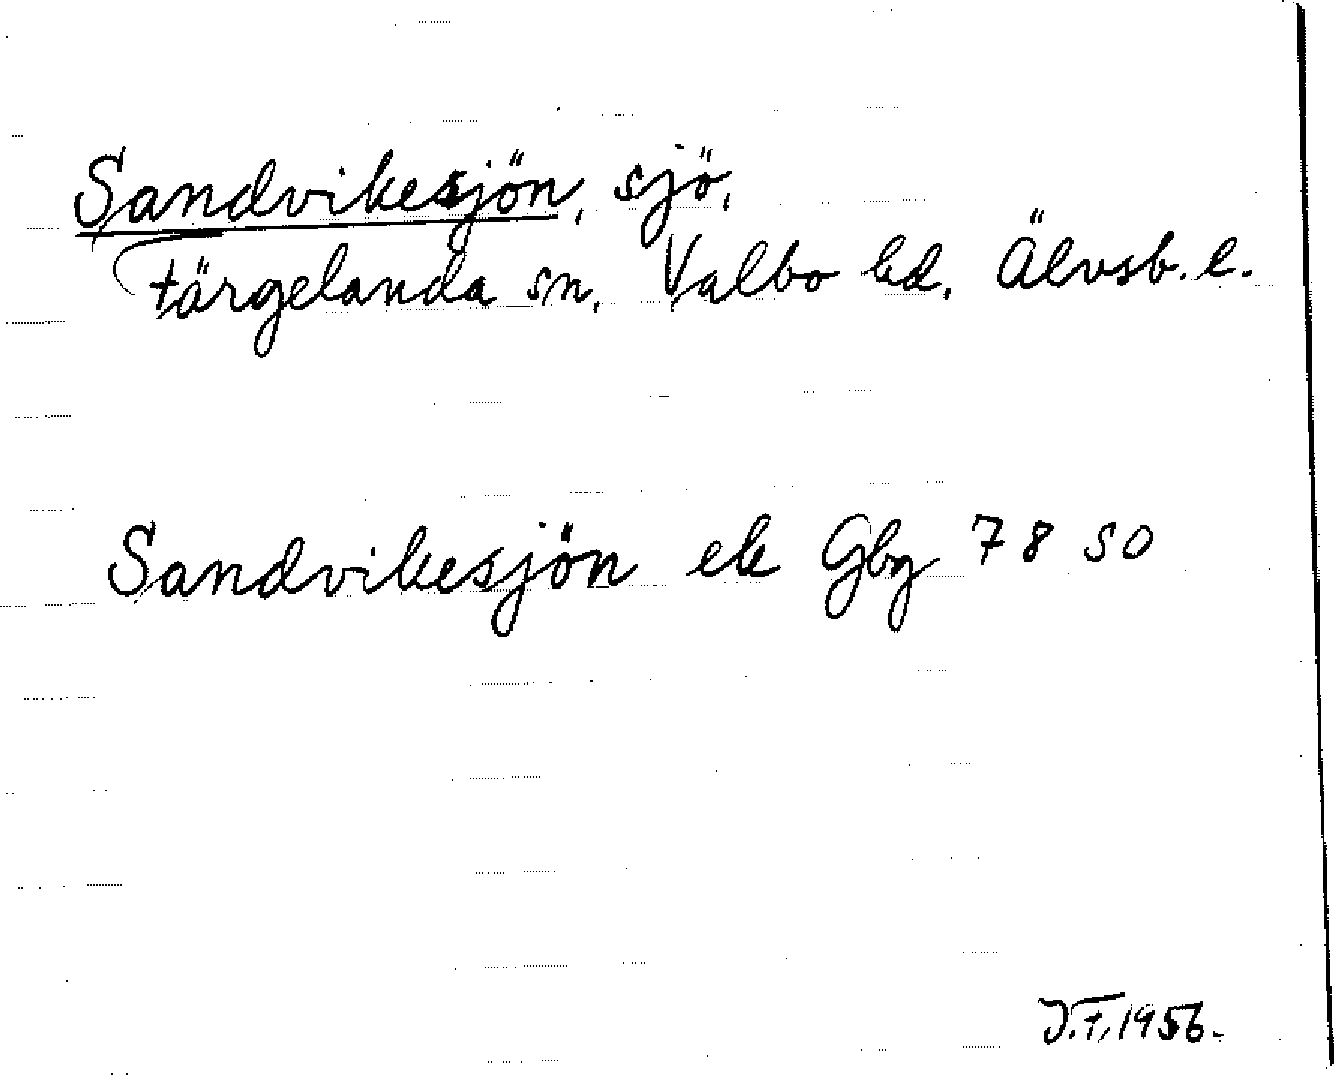 Sandvikesjön, sjö,
Färgelanda sn, Valbo hd, Älvsb. l.
Sandvikesjön ek Gbg 78 SO
J.F. 1956.